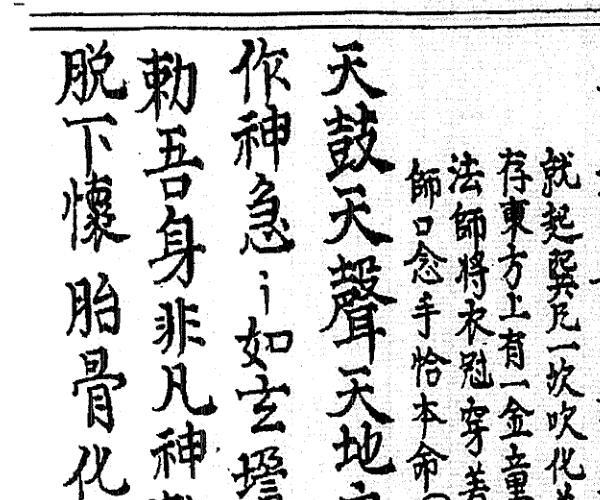 就起巽炁一坎吹化
存東方上有一金童
法師將衣冠穿着
師口念手恰本命
天鼓天聲天地
作神急〻如玄壇
勅吾身非凡神
脱下懷胎骨化